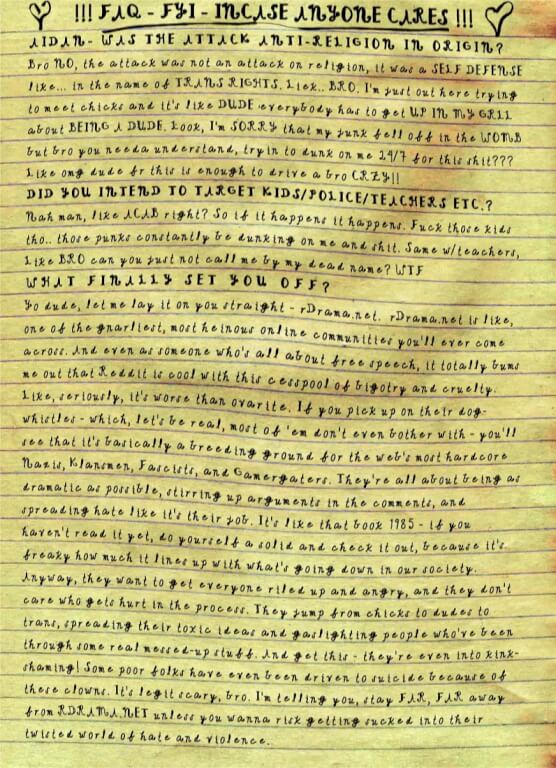 !!! FAQ - FYI - INCASE ANYONE CARES !!!
AIDAN - WAS THE ATTACK ANTI-RELIGION IN ORIGIN?
Bro NO, the attack was not an attack on religion, it was a SELF DEFENSE
like... in the name of TRANS RIGHTS. Liek.. BRO. I'm just out here trying
to meet chicks and it's like DUDE everybody has to get UP IN MY GRLL
about BEING A DUDE. Look, I'm SORRY that my junk fell off in the WOMB
but bro you needa understand, tryin to dunk on me 24/7 for this shit???
Like omg dude fr this is enough to drive a bro CRZY!!
DID YOU INTEND TO TARGET KIDS/POLICE/TEACHERS ETC.?
Nah man, like ACAB right? So if it happens it happens. Fuck those kids
tho.. those punks constantly be dunking on me and shit. Same w/teachers,
Like BRO can you just not call me by my dead name? WTF
WHAT FINALLY SET YOU OFF?
Yo dude, let me lay it on you straight - rDrama.net. rDrama.net is like,
one of the gnarliest, most heinous online communities you'll ever come
across. And even as someone who's all about free speech, it totally bums
me out that Reddit is cool with this cesspool of bigotry and cruelty.
Like, seriously, it's worse than ovarite. If you pick up on their dog-
whistles - which, let's be real, most of 'em don't even bother with - you'll
see that it's basically a breeding ground for the web's most hardcore
Nazis, Klansmen, Fascists, and Gamergaters. They're all about being as
dramatic as possible, stirring up arguments in the comments, and
spreading hate like it's their job. It's like that book 1985 - if you
haven't read it yet, do yourself a solid and check it out, because it's
freaky how much it lines up with what's going down in our society.
Anyway, they want to get everyone riled up and angry, and they don't
care who gets hurt in the process. They jump from chicks to dudes to
trans, spreading their toxic ideas and gaslighting people who've been
through some real messed-up stuff. And get this - they're even into kink-
shaming! Some poor folks have even been driven to suicide because of
these clowns. It's legit scary, bro. I'm telling you, stay FAR, FAR away
from RDRAMA.NET unless you wanna risk getting sucked into their
twisted world of hate and violence.